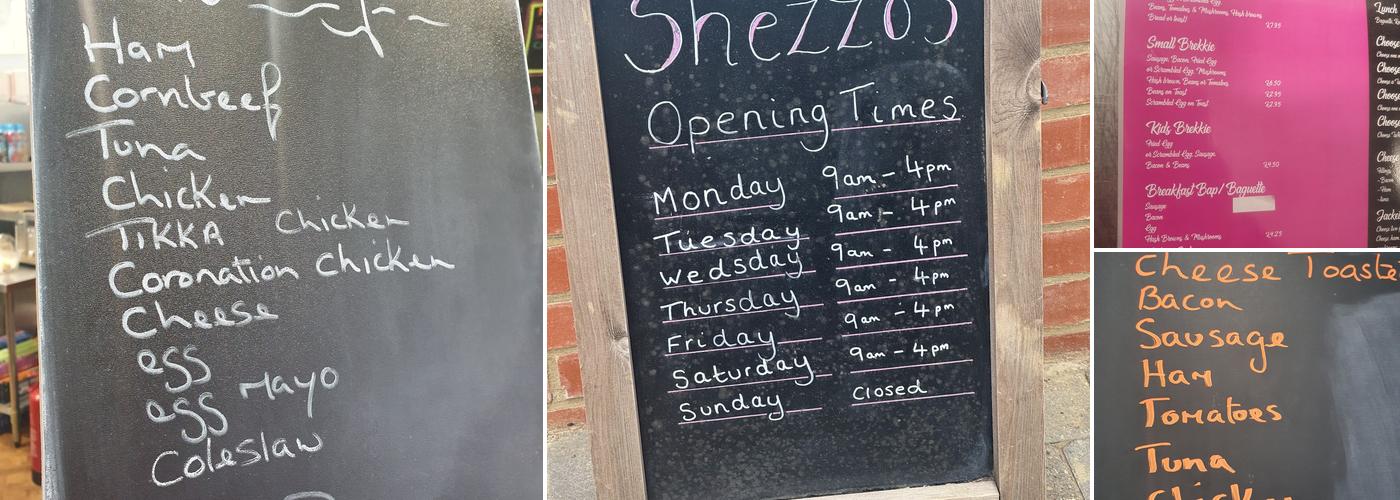 Ham
Cornbeef
Tuna
Chicken
TIKKA Chicken
Coronation Chicken
Cheese
egg
egg Mayo
Coleslaw
Shezzos
Opening Times
Monday 9am - 4pm
Tuesday 9am - 4pm
Wedsday 9am - 4pm
Thursday 9am - 4pm
Friday 9am - 4pm
Saturday 9am - 4pm
Sunday Closed
Beans, Tomatoes & Mushrooms, Hash browns
Bread or toast)
£7.95
Small Brekkie
Sausage, Bacon, Fried Egg
or Scrambled Egg, Mushrooms
Hash brown, Beans or Tomatoes £6.50
Beans on Toast £2.95
Scrambled Egg on Toast £2.95
Kids Brekkie
Fried Egg
or Scrambled Egg, Sausage
Bacon & Beans £4.50
Breakfast Bap/ Baguette
Sausage
Bacon
Egg
Hash Browns & Mushrooms £4.25
Lunch
Choose
Choose
Choose
Choose
Choose
Cheese Toaste
Bacon
Sausage
Ham
Tomatoes
Tuna
Chicken